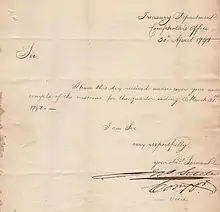 Treasury Department
Comptroller's Office
30th April 1794
Sir
I have this day received under cover your acc
of the customs for the quarter ending March 31
1794.
I am Sir
very respectfully
your
Comp